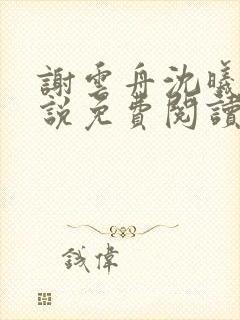 謝雲舟沈曦
説免費閱讀
钱偉